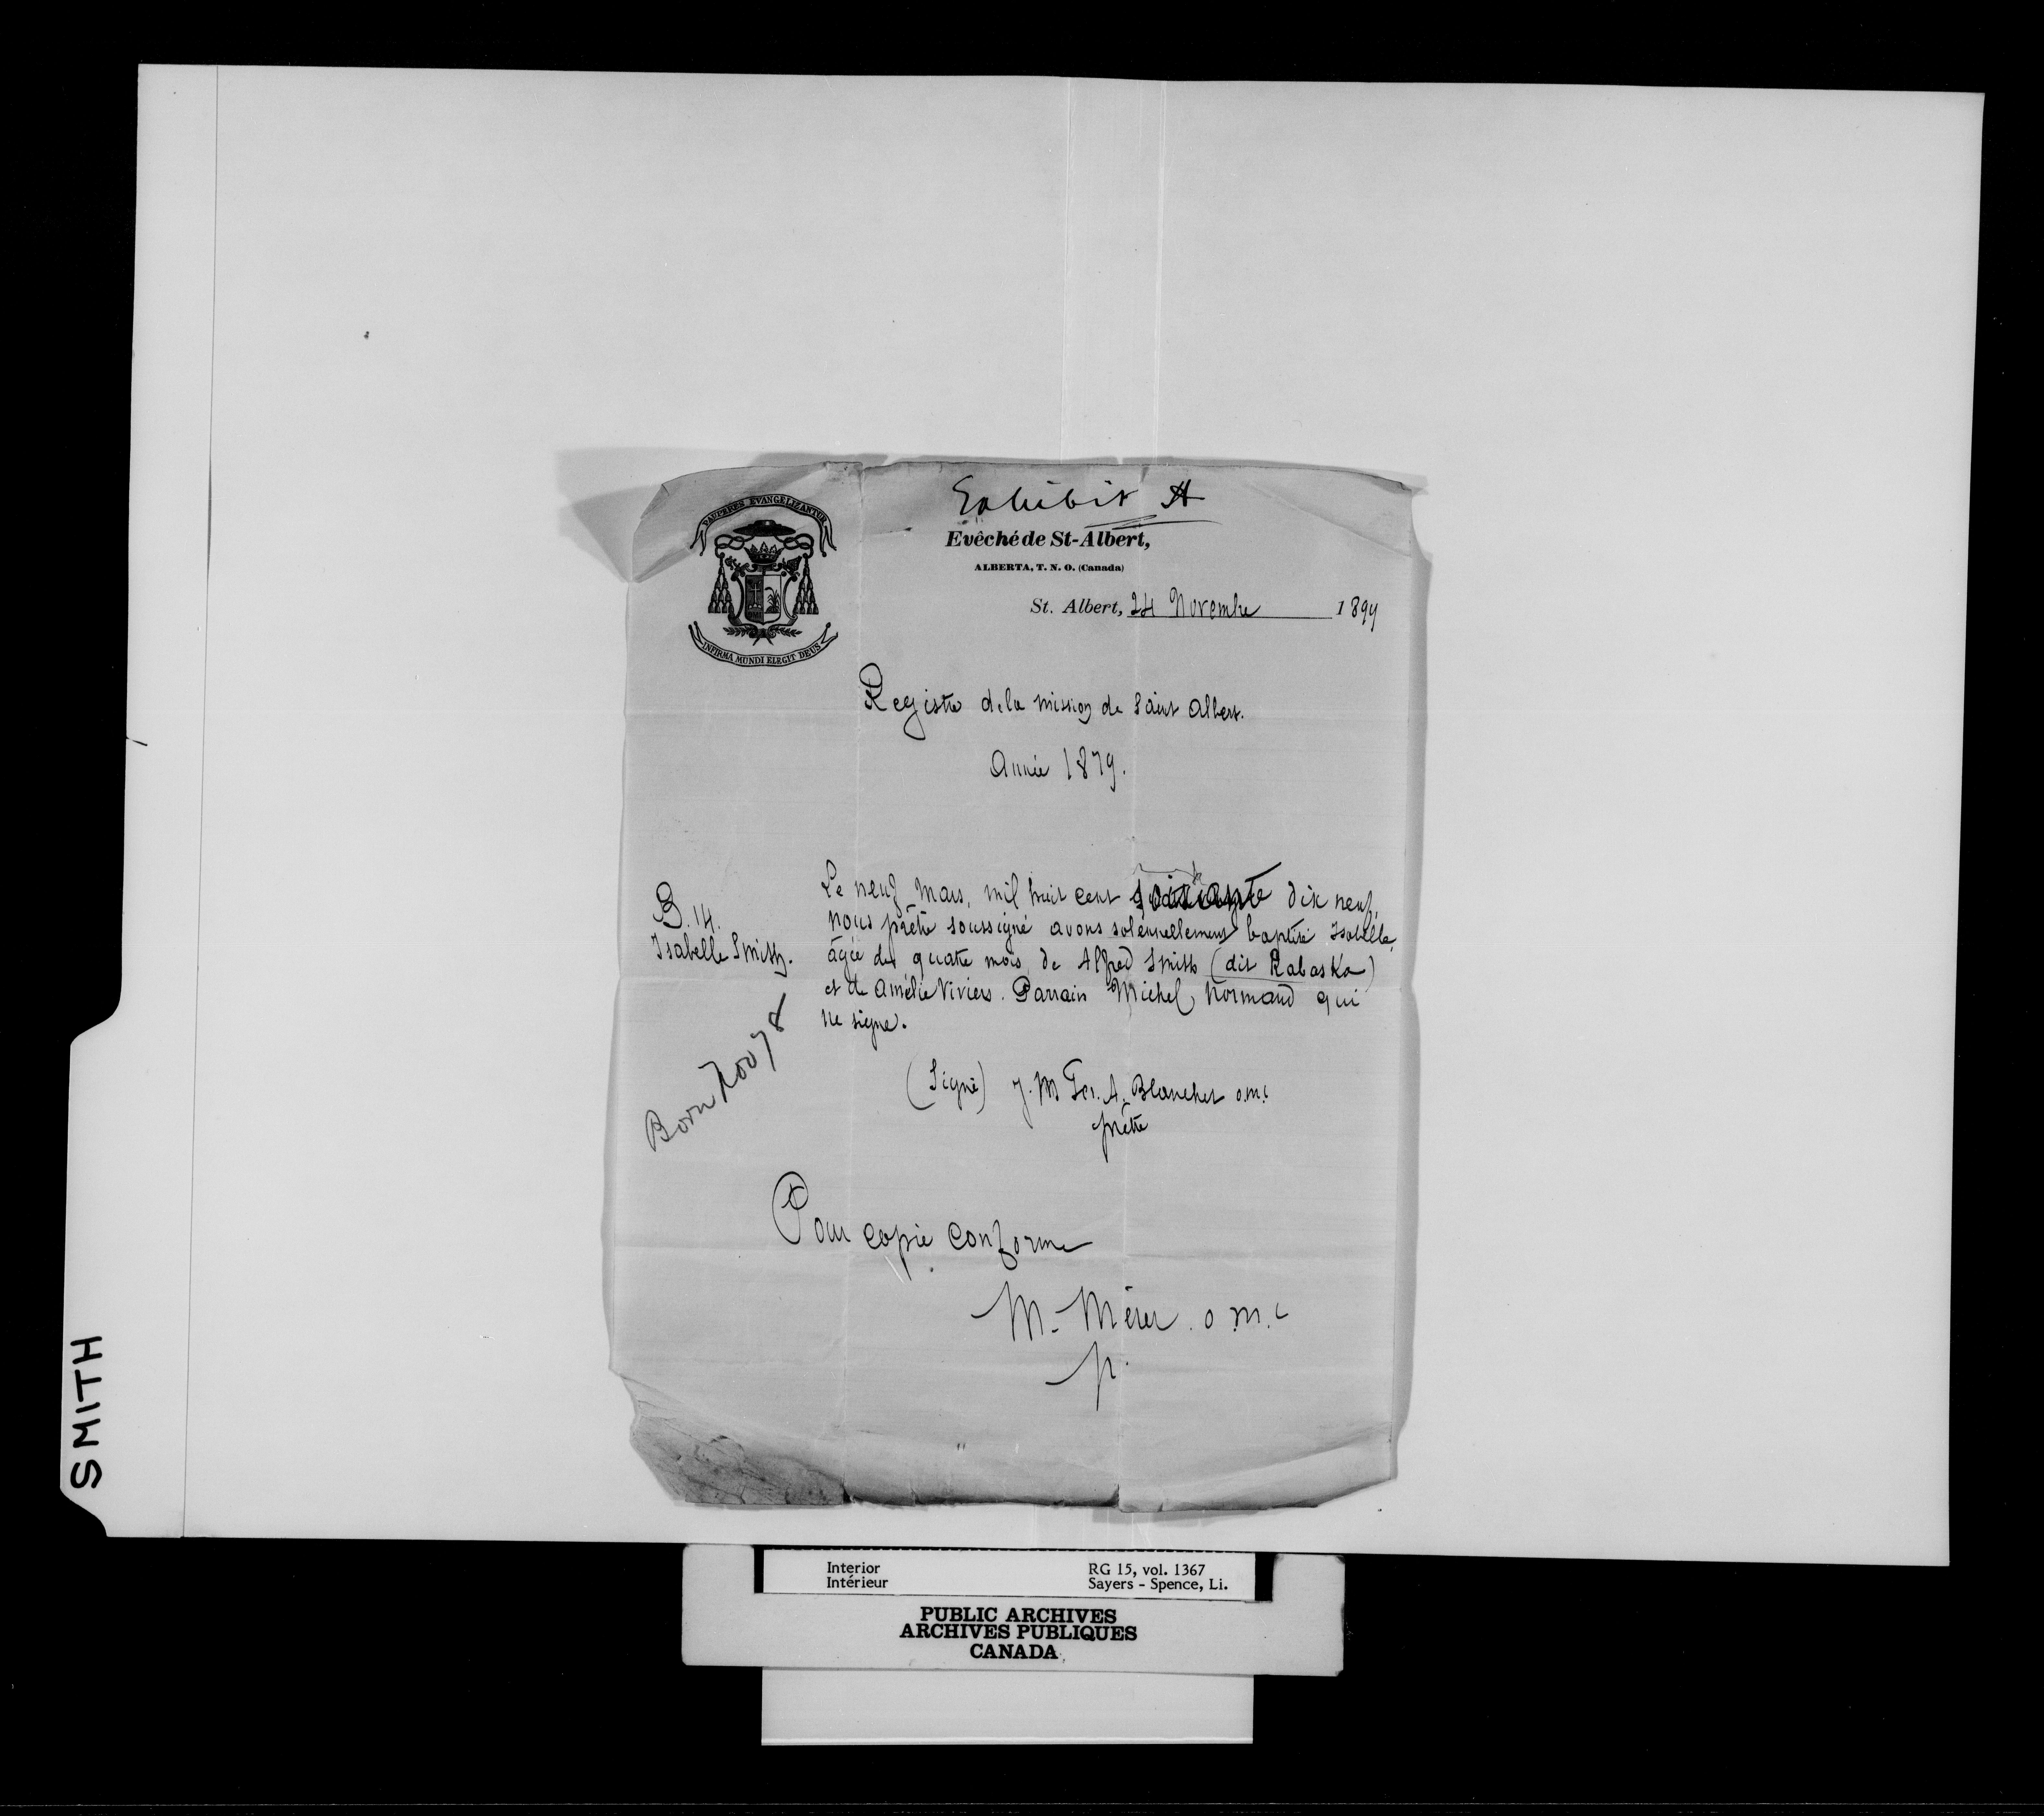 Exhibit A
PAUPERES EVANGELIZANTUR
Evêché de St-Albert,
ALBERTA, T. N. O. (Canada)
St. Albert, 24 Novembre 1899
INFIRMA MUNDI ELEGIT DEUS
Registre de la mission de Saint Albert.
Année 1879.
B. 14.
Isabelle Smith.
Le neuf Mars, mil huit cent soixante dix neuf,
nous prêtre soussigné avons solennellement baptisé Isabelle,
âgée de quatre mois, de Alfred Smith (dit Rabaska)
et de Amélie Viviers. Parrain Michel Normand qui
ne signe.
Born Nov 78
(Signé) J. M Fcs. A. Blanchet o.m.i
prêtre
Pour copie conforme
M. Mérer. o.m.i
p.
SMITH
Interior
Intérieur
RG 15, vol. 1367
Sayers - Spence, Li.
PUBLIC ARCHIVES
ARCHIVES PUBLIQUES
CANADA